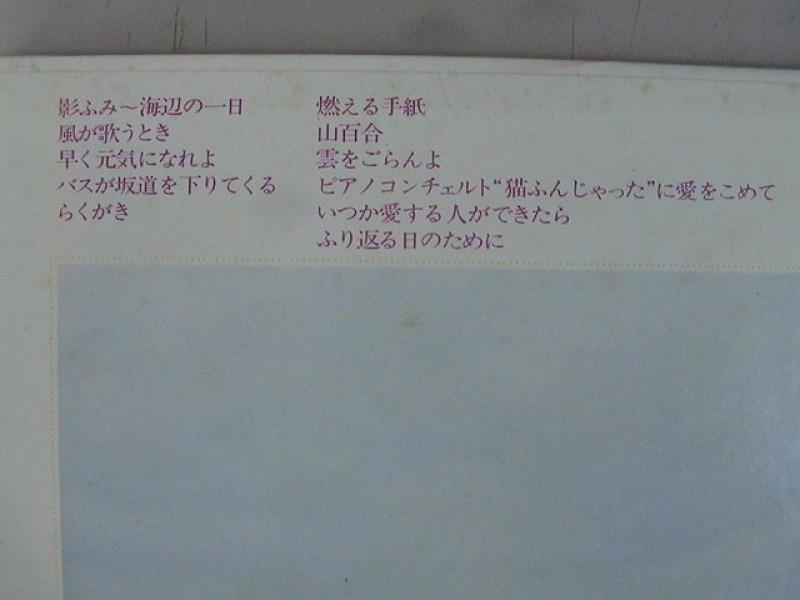 影ふみ〜海辺の一日
風が歌うとき
早く元気になれよ
バスが坂道を下りてくる
らくがき
燃える手紙
山百合
雲をごらんよ
ピアノコンチェルト“猫ふんじゃった”に愛をこめて
いつか愛する人ができたら
ふり返る日のために